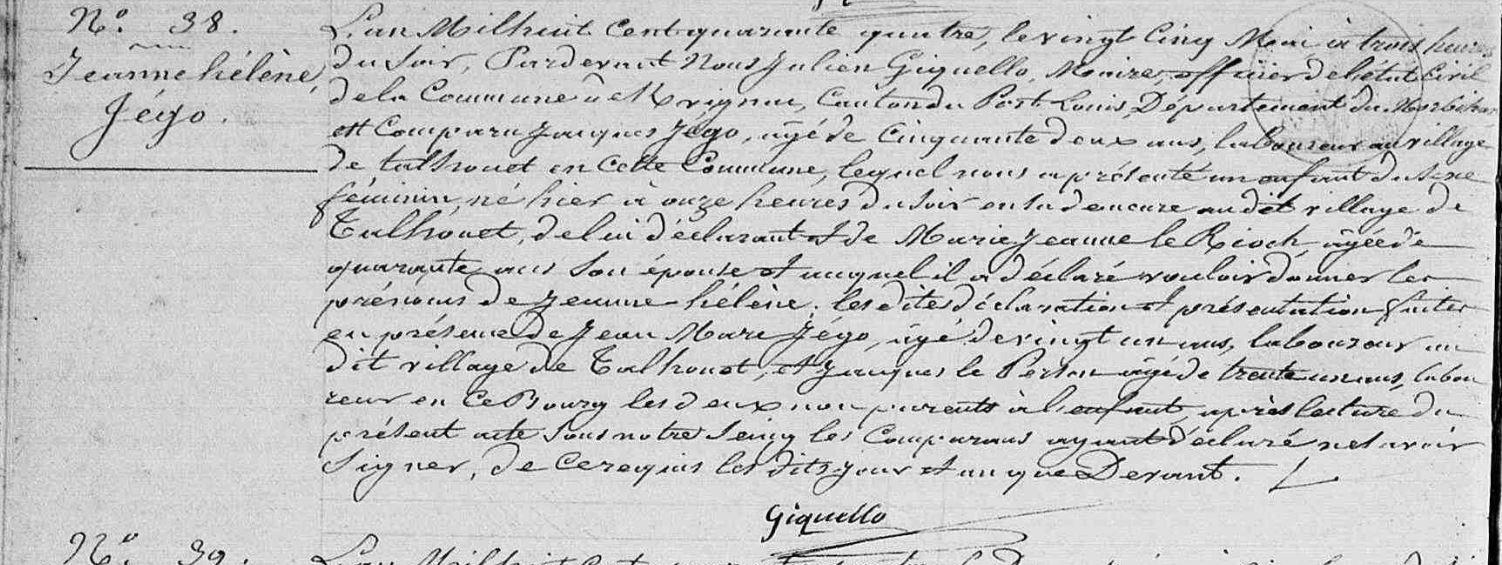 N.° 38.
Jeanne hélène
Jégo.
L'an Mil huit Cent quarante quatre, le vingt Cinq Mai à trois heures
du Soir, Pardevant Nous Julien Giquello, Maire officier de l'état Civil
de la Commune de Merignac, Canton du Port Louis, Département du Morbihan
est Comparu Jacques Jégo, âgé de Cinquante deux ans, laboureur au village
de talhouet en Cette Commune, lequel nous a présenté un enfant du Sexe
féminin, né hier à onze heures du Soir en sa demeure au dit village de
Talhouet, de lui déclarant et de Marie Jeanne le Rioch, âgée de
quarante ans Son épouse et auquel il a déclaré vouloir donner les
prénoms de Jeanne-hélène. les dites déclaration et présentation faites
en présence de Jean Marc Jégo, âgé de vingt un ans, laboureur au
dit village de Talhouet, et Jacques le Personâgé de trente un ans, labou
reur en Ce Bourg les deux non parents à l'enfant, après lecture du
présent acte Sous notre Seing les Comparans ayant déclaré ne savoir
Signer, de Ce requis les dits jour et an que Devant.
Giquello
N.° 39.
L'an Mil huit Cent